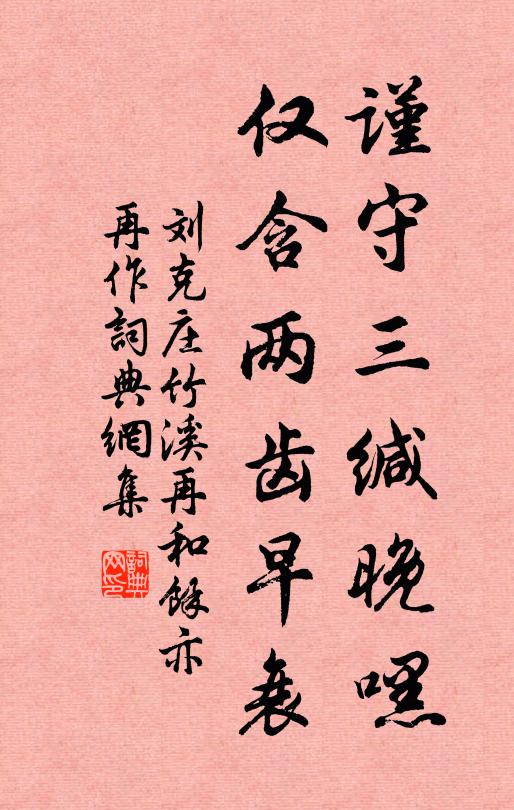 謹守三缄晚嘿
仅含两齿早衰
刘克庄竹溪再和馀亦
再作詞典網集
詞典网印